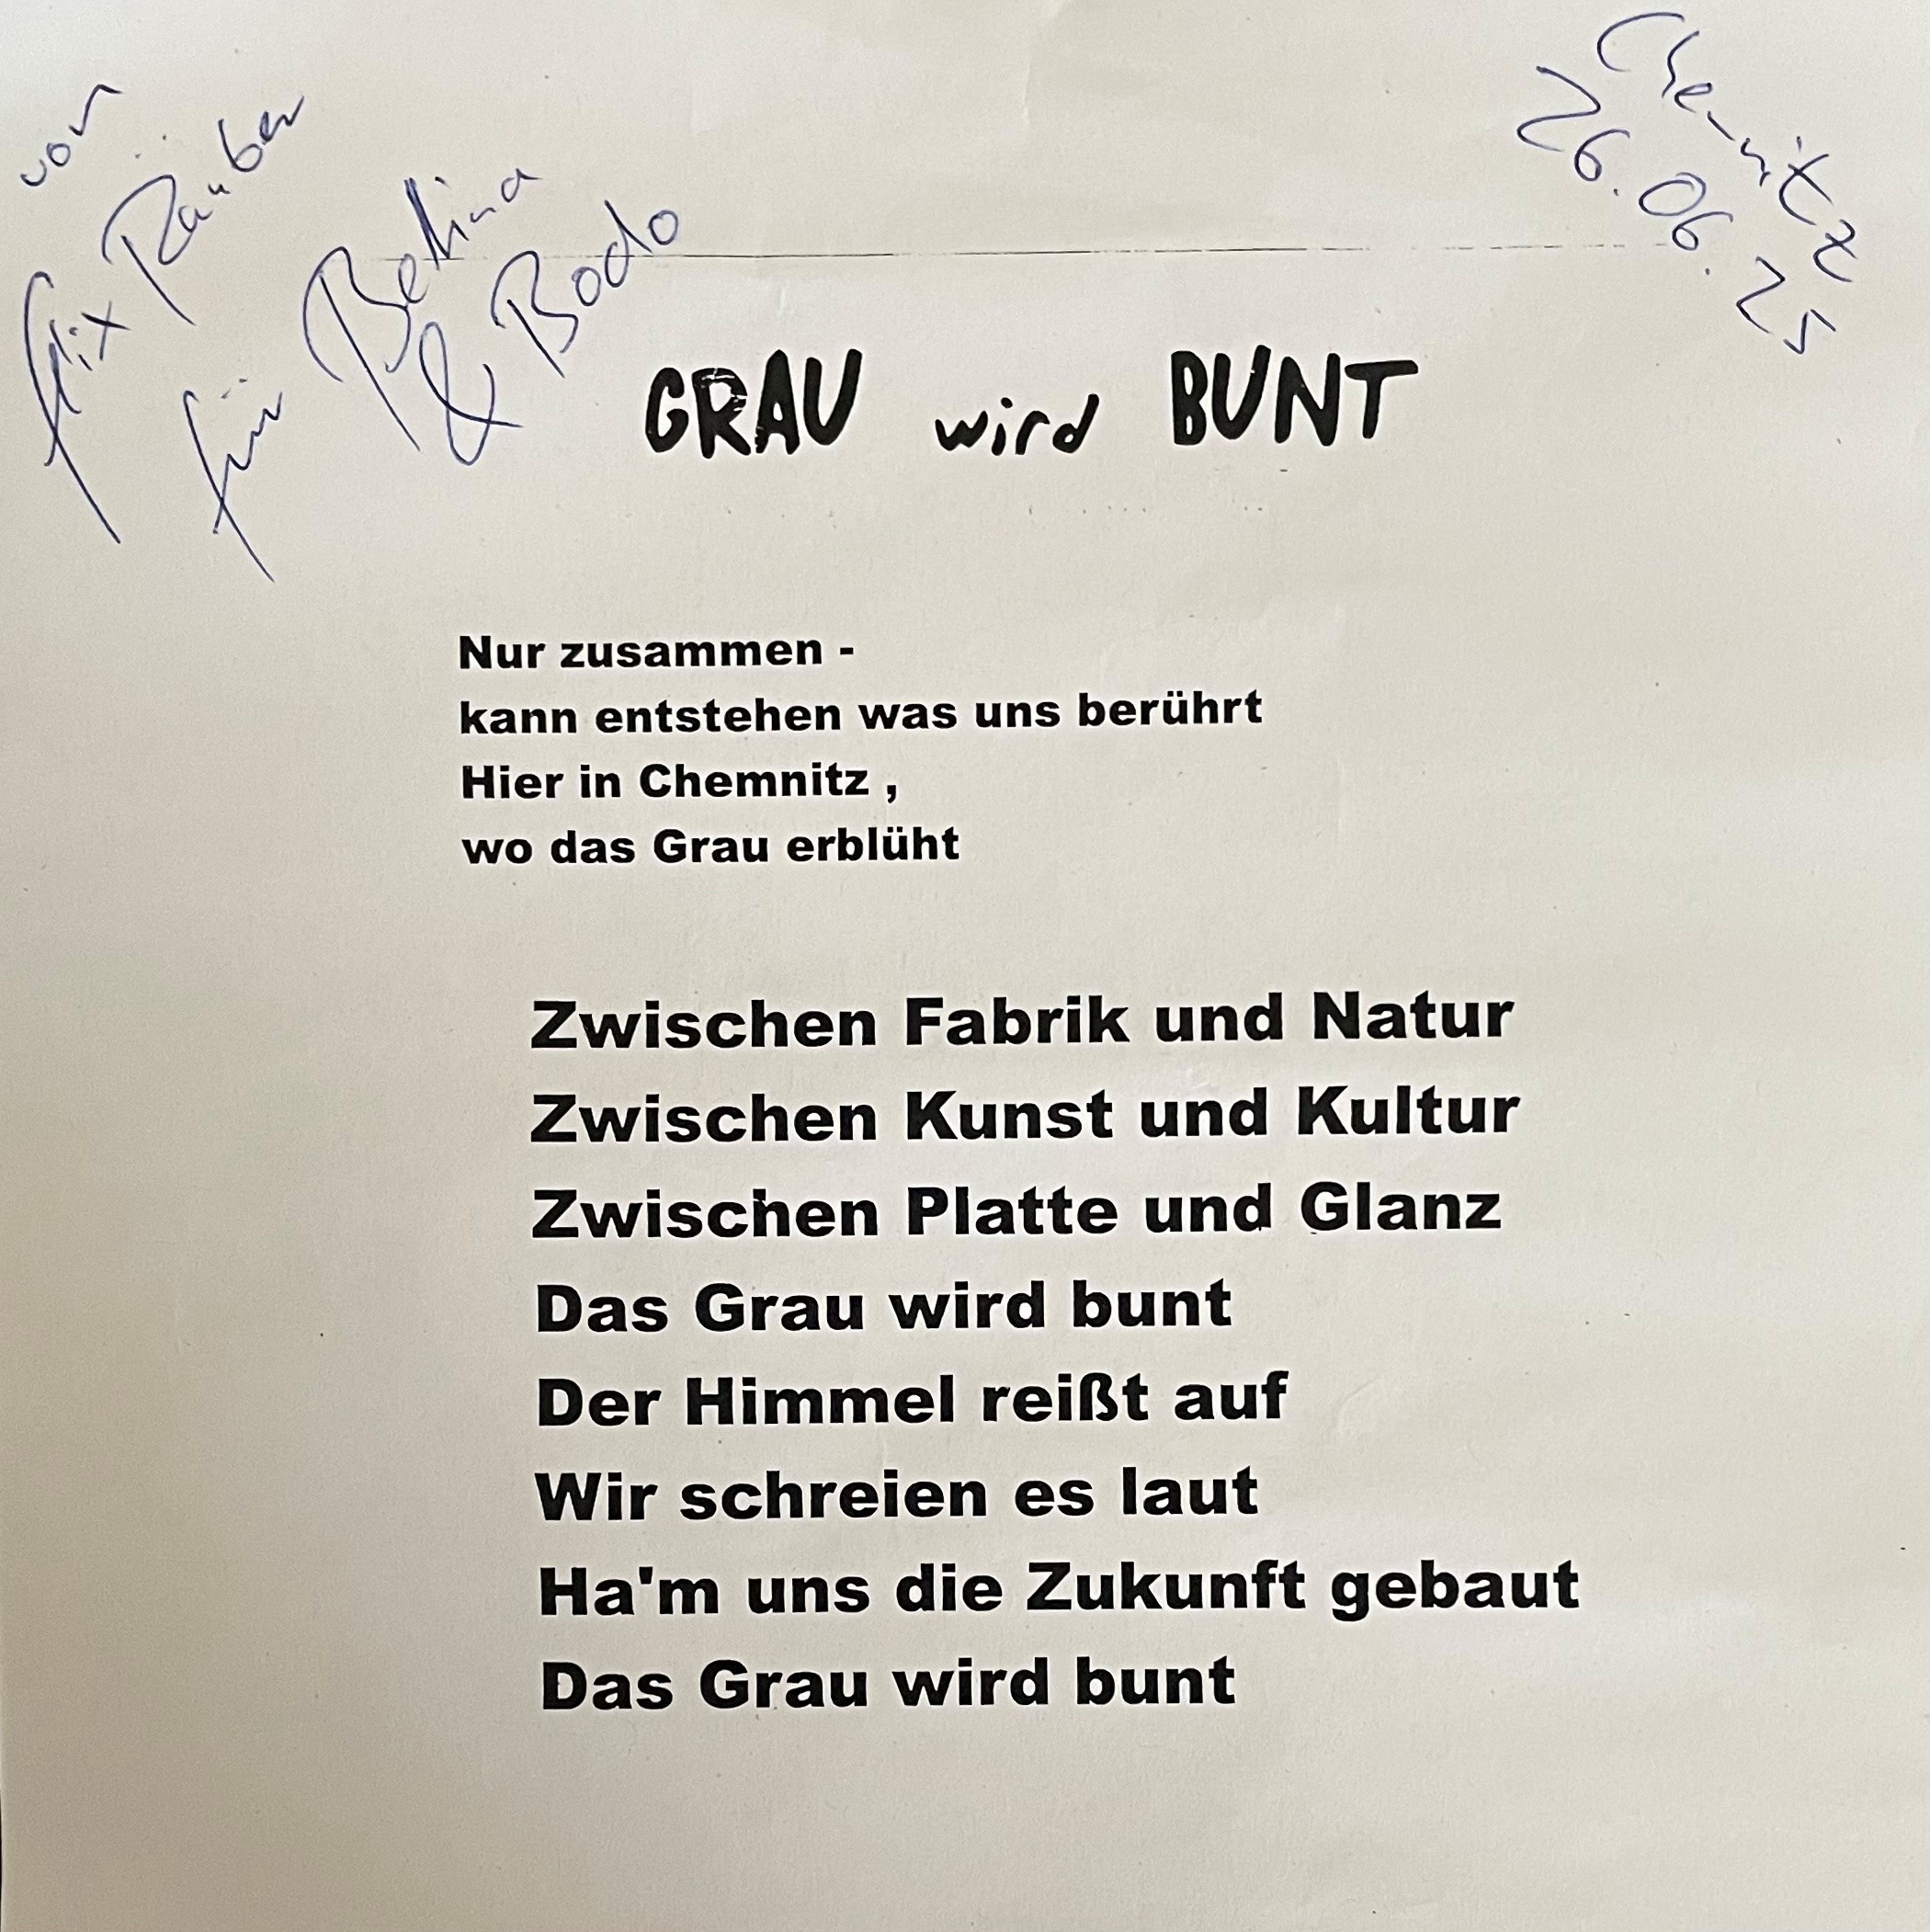 von
Felix Räuber
für Bettina
& Bodo
Chemnitz
26.06.25
GRAU wird BUNT
Nur zusammen -
kann entstehen was uns berührt
Hier in Chemnitz ,
wo das Grau erblüht
Zwischen Fabrik und Natur
Zwischen Kunst und Kultur
Zwischen Platte und Glanz
Das Grau wird bunt
Der Himmel reißt auf
Wir schreien es laut
Ha'm uns die Zukunft gebaut
Das Grau wird bunt